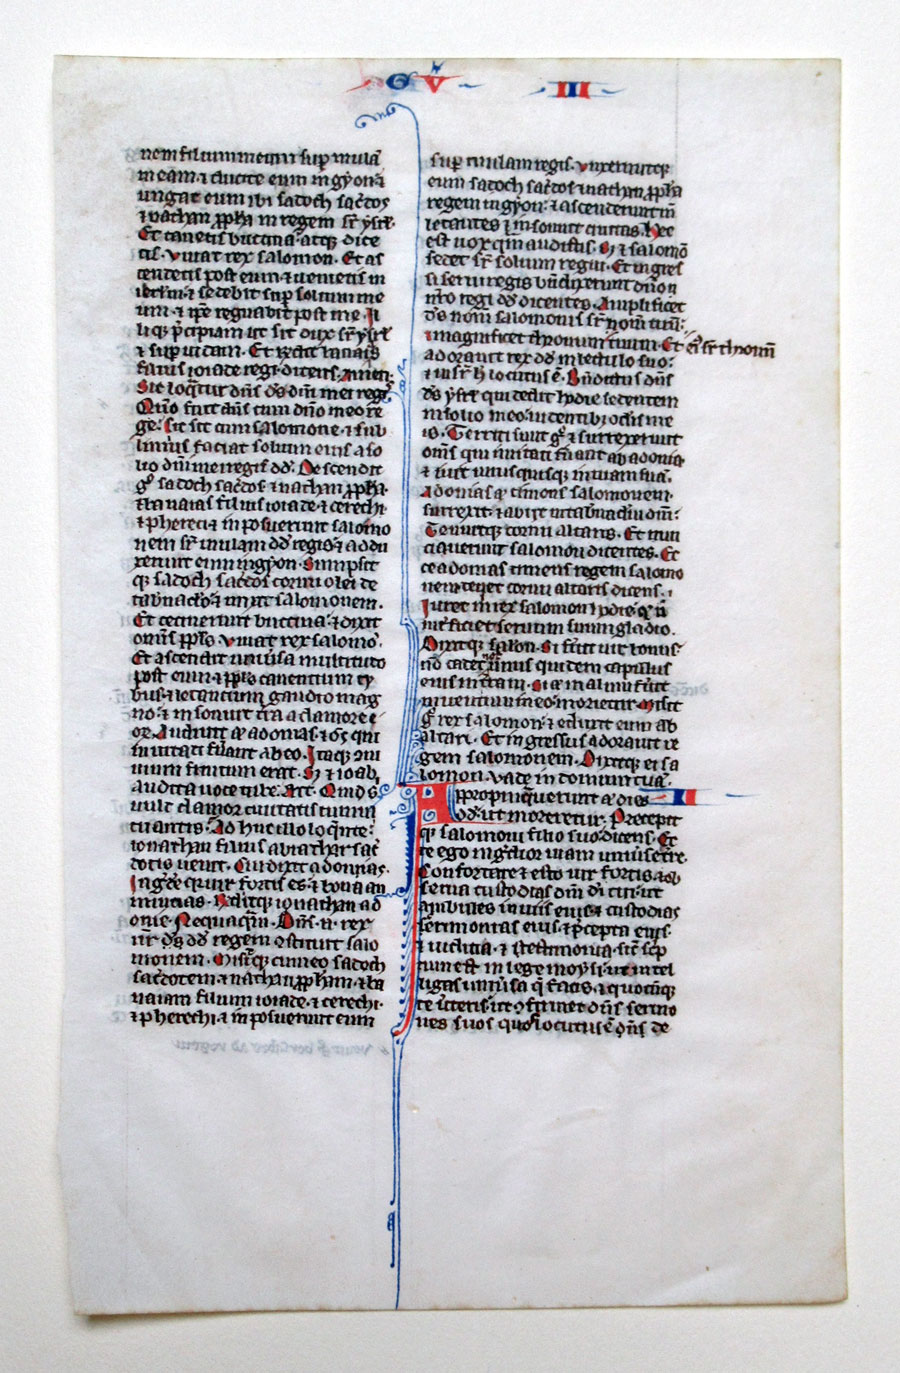 G V III
nem filium meum sup mulā
meam ⁊ ducite eum in gyon ⁊
ungat eum ibi sadoch sac̄dos
⁊ nathan ꝓpha in regem sr̄ ysrl̄.
Et canetis buccina atqꝫ dice
tis. Vivat rex salomon. Et as
cendetis post eum ⁊ venietis in
ihrl̄m ⁊ sedebit sup solium me
um ⁊ ip̄e regnabit post me. Il
liqꝫ p̄cipiam ut sit dux sr̄ ysrl̄
⁊ sup iudam. Et
filius ioiade regi dicens. Amen.
Sic loq̄tur dn̄s ds̄ dn̄i mei regꝭ
Quō fuit dn̄s cum dn̄o meo re
ge. sic sit cum salomone ⁊ sub
limius faciat solium eius a so
lio dn̄i mei regis dd̄. Descendit
gͦ sadoch sac̄dos ⁊ nathan ꝓpha.
⁊ banaias filius ioiade ⁊ cerethi
⁊ pherethi ⁊ inposuerunt salomo
nem sr̄ mulam dd̄ regis ⁊ addu
xerunt eum in gyon. Sumpsit
qꝫ sadoch sac̄dos cornu olei de
tab̄naclo ⁊ unxit salomonem.
Et cecinerunt buccina ⁊ dixit
omīs ppl̄s. Vivat rex salomō.
Et ascendit univ̄sa multitudo
post eum ⁊ ppl̄s canentium ty
biis ⁊ letantium gaudio mag
no ⁊ insonuit t̄ra a clamore e
or. Audivit aͭ adonias ⁊ om̄s qui
invitati fūant ab eo. Itaqꝫ
vivium finitum erat. Sꝫ ⁊ ioab
audita voce tube. Ait. Quid s
vult clamor civitatis tumul
tuantis. Adhuc illo loq̄nte
ionathan filius abiathar sac̄
dotis venit. Cui dixit adonias.
Ingꝛ̄de quia vir fortis es ⁊ bona an
nuncias. Rn̄ditqꝫ ionathan ad
onie. Nequaq̄m. Dn̄s. n̄. rex
nr̄ dd̄ regem ꝯstituit salo
monem. Misitqꝫ cum eo sadoch
sac̄dotem ⁊ nathan ꝓpham ⁊ ba
naiam filium ioiade ⁊ cerethi.
⁊ pherethi. ⁊ inposuerunt eum
sup mulam regis. Unxeruntqꝫ
eum sadoch sac̄dos ⁊ nathan ꝓpha
regem in gyon ⁊ ascenderunt īn
letantes ⁊ insonuit civitas. Hec
est vox q̄m audistis. Sꝫ ⁊ salomō
sedet sr̄ solium regni. Et ingres
si servi regis bn̄dixerunt dn̄o n
nr̄o regi dd̄ dicentes. Amplificet
ds̄ nom̄ salomonis sr̄ nom̄ tuū:
⁊ magnificet thronum tuum. Et eiͥ sr̄ thronū
adoravit rex dd̄ in lectulo suo:
⁊ insr̄ h̄ locutus ē. Bn̄dictus dn̄s
ds̄ ysrl̄ qui dedit hodie sedentem
in solio meo. videntibꝫ oculis me
is. Territi sunt gͦ ⁊ surrexerunt
om̄s qui invitati fūant ab adonia
⁊ ivit unusquisqꝫ in viam suā.
Adonias aͭ timens salomonem.
surrexit ⁊ abiit in tab̄naclm̄ dn̄i:
Tenuitqꝫ cornu altaris. Et nun
ciaverunt salomoni dicentes. Ec
ce adonias timens regem salomo
nem tenet cornu altaris dicens.
Iuret m̄ rex salomon hodie qͩ n̄
int̄ficiet servum suum gladio.
Dixitqꝫ salon. Si fūit vir bonus
nō cadet unus quidem capillus
eius in t̄ram. Si aͭ malum fūit
inventum in eo. morietur. Misit
gͦ rex salomon ⁊ eduxit eum ab
altari. Et ingressus adoravit re
gem salomonem. Dixitqꝫ ei sa
lomon. Vade in domum tuā.
Appropinq̄verunt aͭ dies II
dd̄. ut moreretur. Precepit
qꝫ salomoni filio suo. dicens. Et
ce ego ingꝛ̄dior viam univ̄se t̄re.
Confortare ⁊ esto vir fortis.
serva custodias dn̄i di tui. ut
ambules in viis eius ⁊ custodias
c̄rimonias eius ⁊ p̄cepta eius.
⁊ iudicia. ⁊ testimonia. sic̄ sc̄p
tum est in lege moysi. ut intel
ligas univ̄sa q̄ facis. ⁊ quocūqꝫ
te v̄teris. ut ꝯfirmet dn̄s sermo
nes suos quos locutus ē dn̄s de